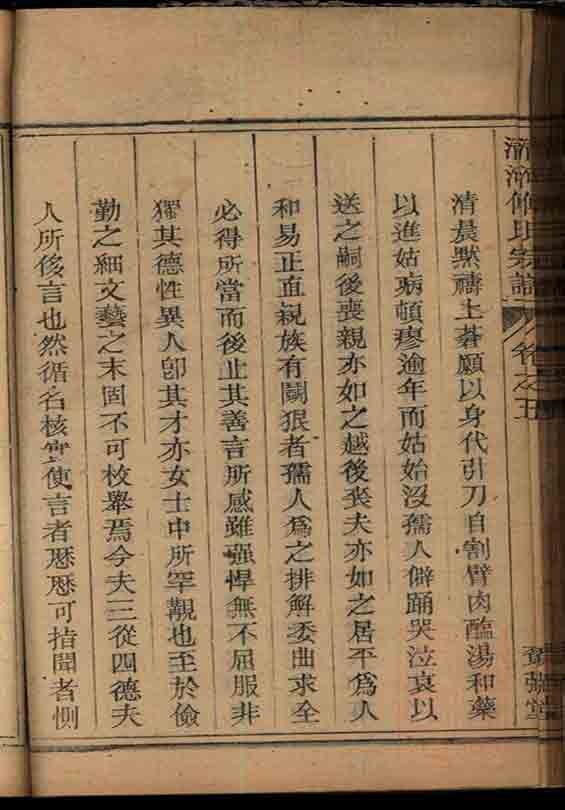 氏宗譜 卷之五
清晨黙禱上蒼願以身代引刀自割臂肉醢湯和藥
以進姑病頓瘳逾年而姑始沒孺人僻踊哭泣哀以
送之嗣後喪親亦如之越後喪夫亦如之居平爲人
和易正直親族有鬬狠者孺人爲之排解委曲求全
必得所當而後止其善言所感雖强悍無不屈服非
獨其德性異人卽其才亦女士中所罕覯也至於儉
勤之細文藝之末固不可校舉焉今夫三從四德夫
人所侈言也然循名核實使言者愿愿可指聞者惻